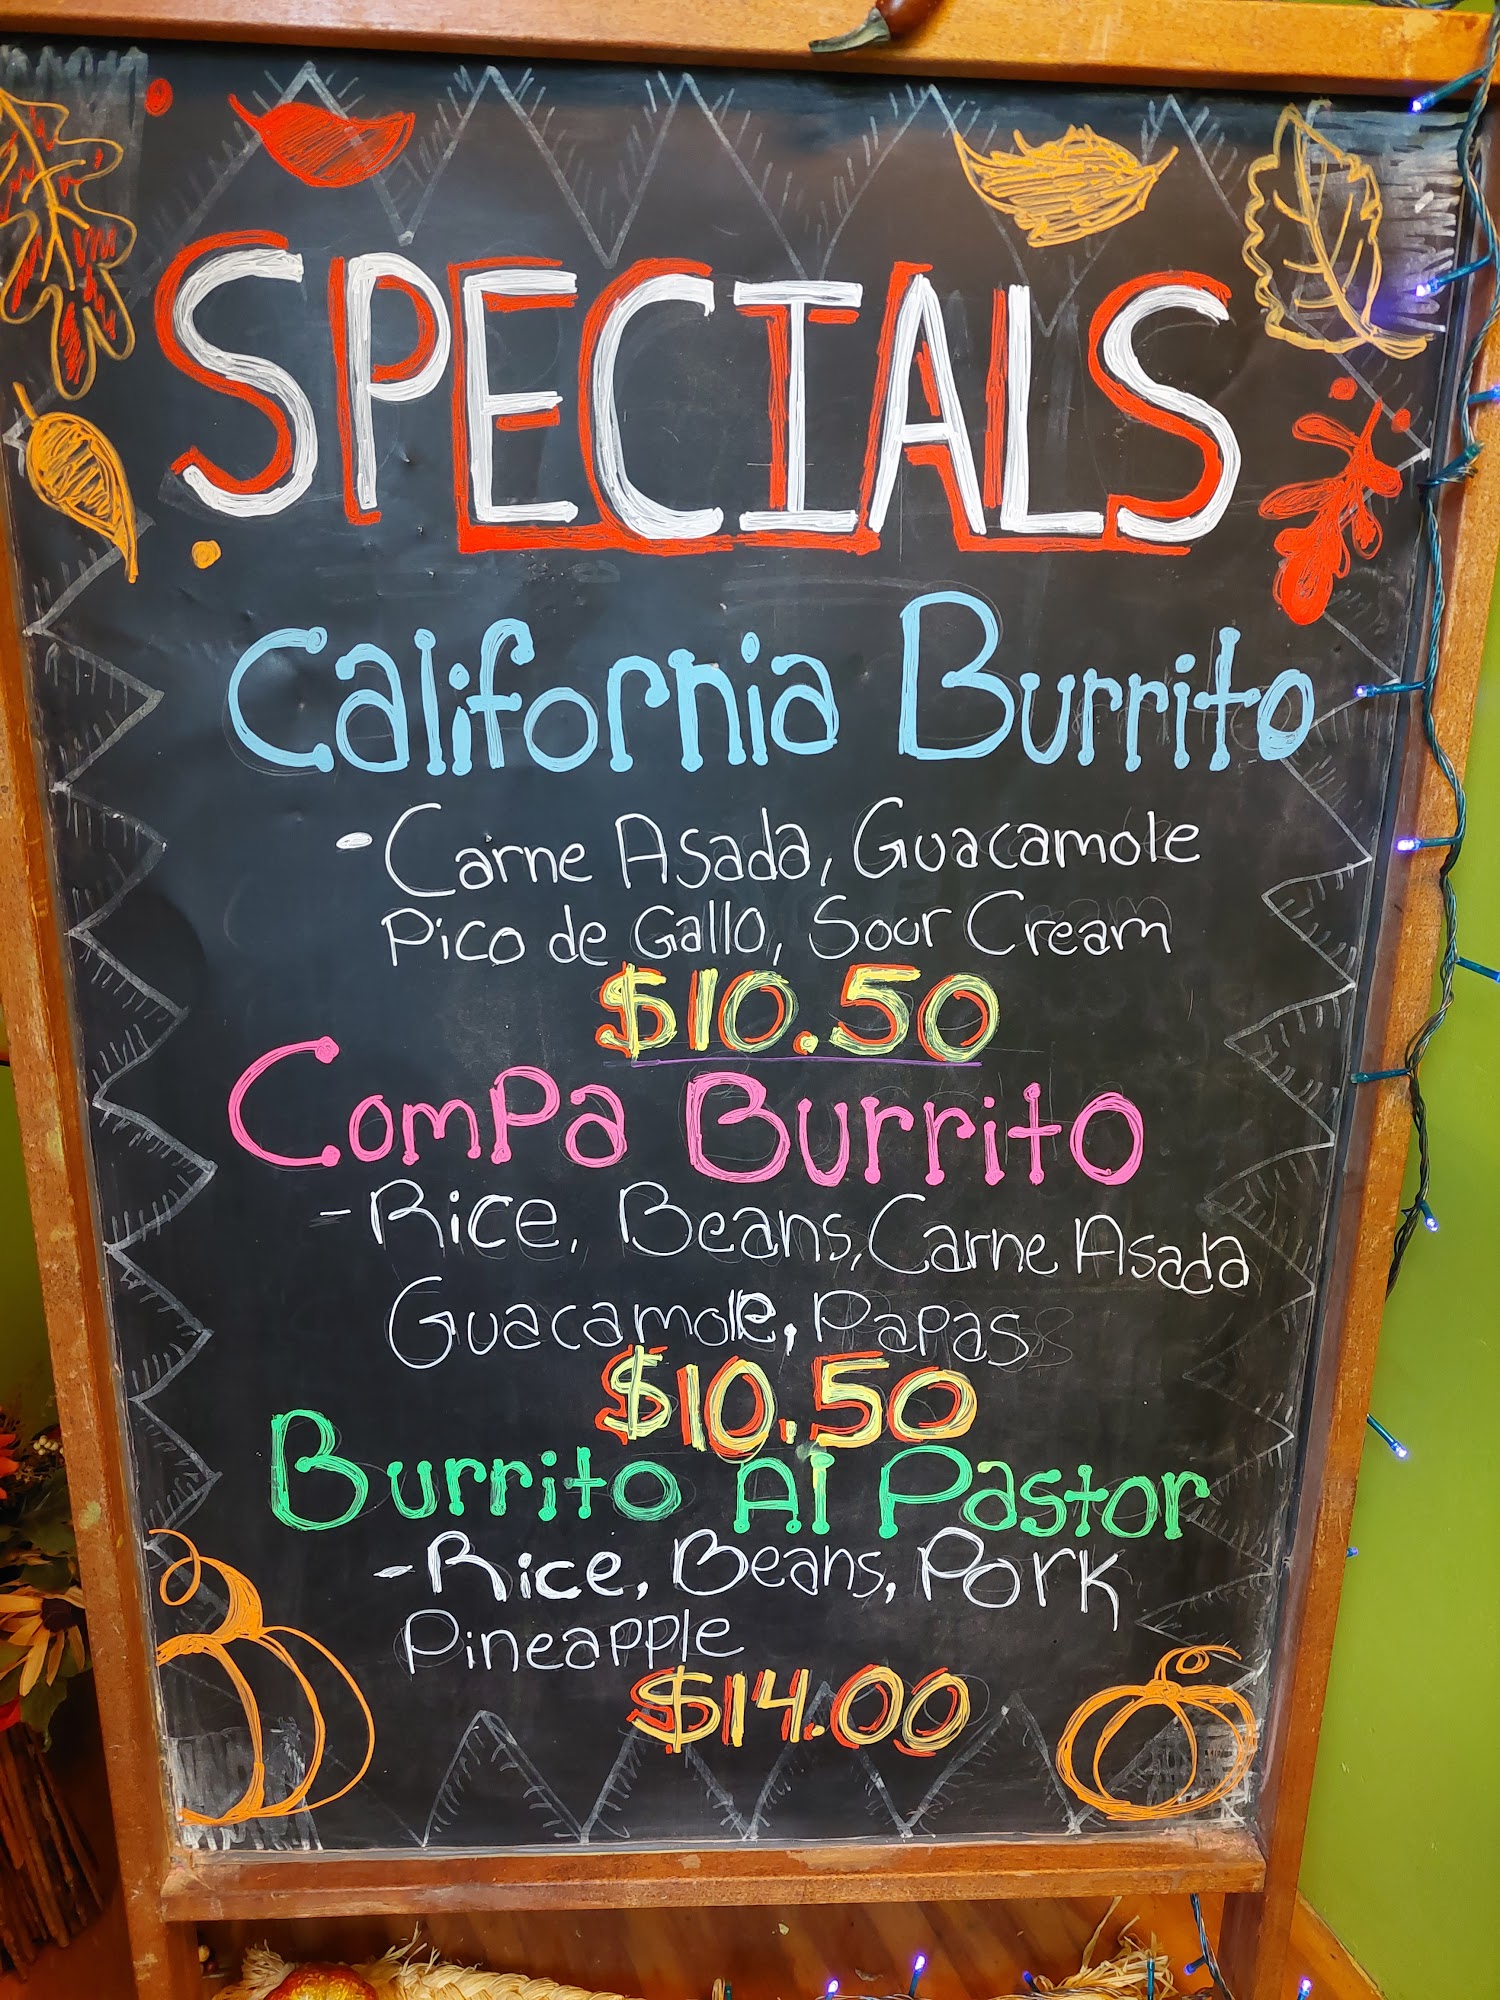 SPECIALS
California Burrito
• Carne Asada, Guacamole
Pico de Gallo, Sour Cream
$10.50
Compa Burrito
- Rice, Beans, Carne Asada
Guacamole, Papas
$10.50
Burrito Al Pastor
- Rice, Beans, Pork
Pineapple
$14.00